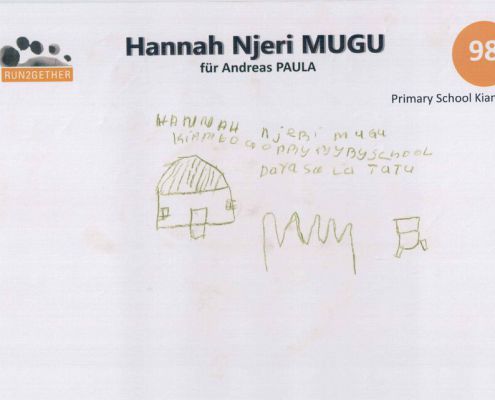 Hannah Njeri MUGU
für Andreas PAULA
RUN2GETHER
98
Primary School Kiam
HANNAH Njeri mugu
KiAmbogo SCHOOL
Darasa La TaTu